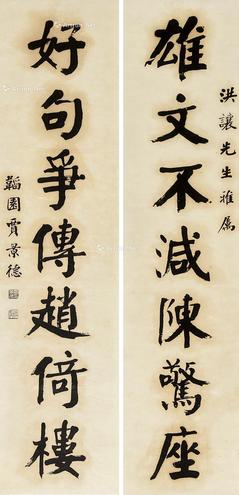 洪讓先生雅屬
雄文不減陳驚座
好句爭傳趙倚樓
韜園賈景德